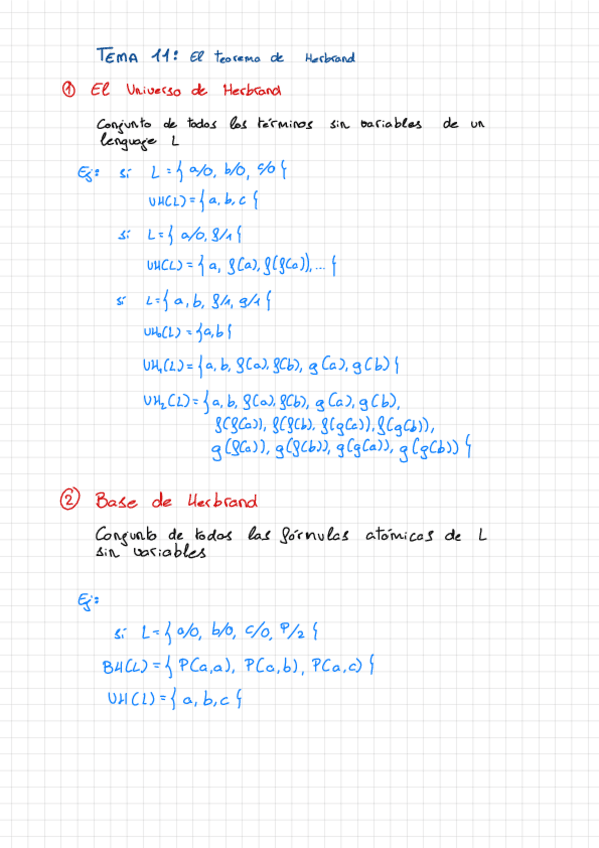 TEMA 11: El teorema de Herbrand
① El Universo de Herbrand
Conjunto de todos los términos sin variables de un
lenguaje L
Ej: si L = { a/0, b/0, c/0 }
UH(L) = { a, b, c }
si L = { a/0, f/1 }
UH(L) = { a, f(a), f(f(a)), ... }
si L = { a, b, f/1, g/1 }
UH₀(L) = { a, b }
UH₁(L) = { a, b, f(a), f(b), g(a), g(b) }
UH₂(L) = { a, b, f(a), f(b), g(a), g(b),
f(f(a)), f(f(b), f(g(a)), f(g(b)),
g(f(a)), g(f(b)), g(g(a)), g(g(b)) }
② Base de Herbrand
Conjunto de todas las fórmulas atómicas de L
sin variables
Ej:
si L = { a/0, b/0, c/0, P/2 }
BH(L) = { P(a,a), P(a,b), P(a,c) }
UH(L) = { a, b, c }